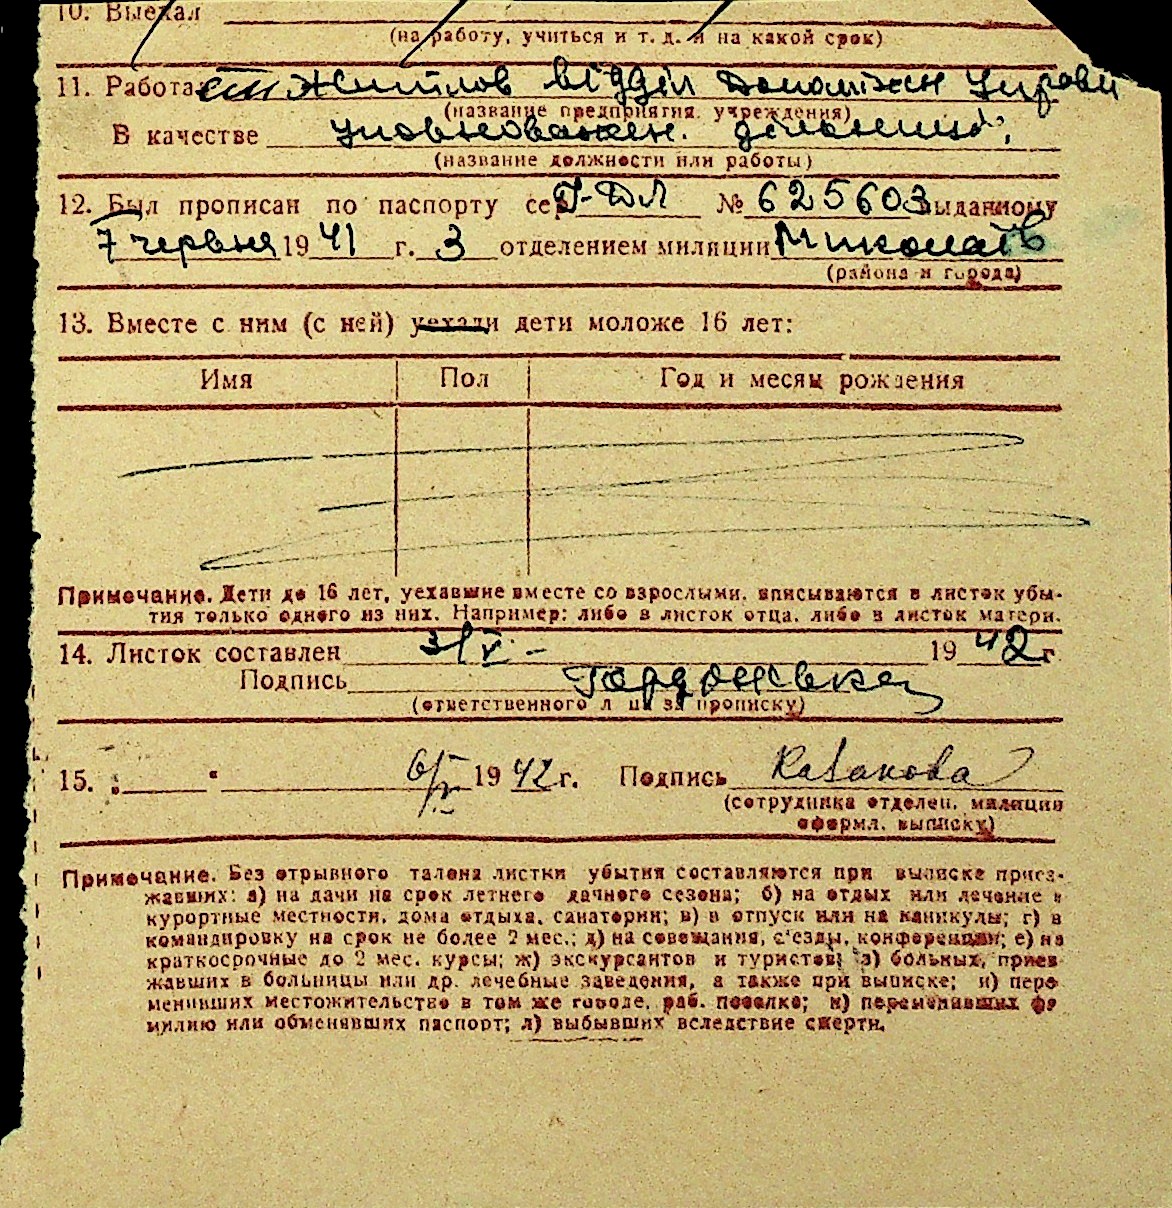 10. Выехал
(на работу, учиться и т. д. и на какой срок)
11. Работа Житлов відділ Допоміжн Управи
(название предприятия, учреждения)
В качестве уповноважен. дільниці
(название должности или работы)
12. Был прописан по паспорту сер № 625603 выданному
7 червня 1941 г. 3 отделением милиции Миколаїв
(района и города)
13. Вместе с ним (с ней) уехали дети моложе 16 лет:
Имя Пол Год и месяц рождения
Примечание. Дети до 16 лет, уехавшие вместе со взрослыми, вписываются в листок убы-
тия только одного из них. Например: либо в листок отца, либо в листок матери.
14. Листок составлен 3/V - 1942 г.
Подпись
(ответственного лица за прописку)
15. 6/V 1942 г. Подпись Казакова
(сотрудника отделен. милиции
оформл. выписку)
Примечание. Без отрывного талона листки убытия составляются при выписке приез-
жавших: а) на дачи на срок летнего дачного сезона; б) на отдых или лечение в
курортные местности, дома отдыха, санатории; в) в отпуск или на каникулы; г) в
командировку на срок не более 2 мес.; д) на совещания, с'езды, конференции; е) на
краткосрочные до 2 мес. курсы; ж) экскурсантов и туристов; з) больных, приез-
жавших в больницы или др. лечебные заведения, а также при выписке; и) пере-
менивших местожительство в том же городе, раб. поселке; к) переменивших фа-
милию или обменявших паспорт; л) выбывших вследствие смерти.